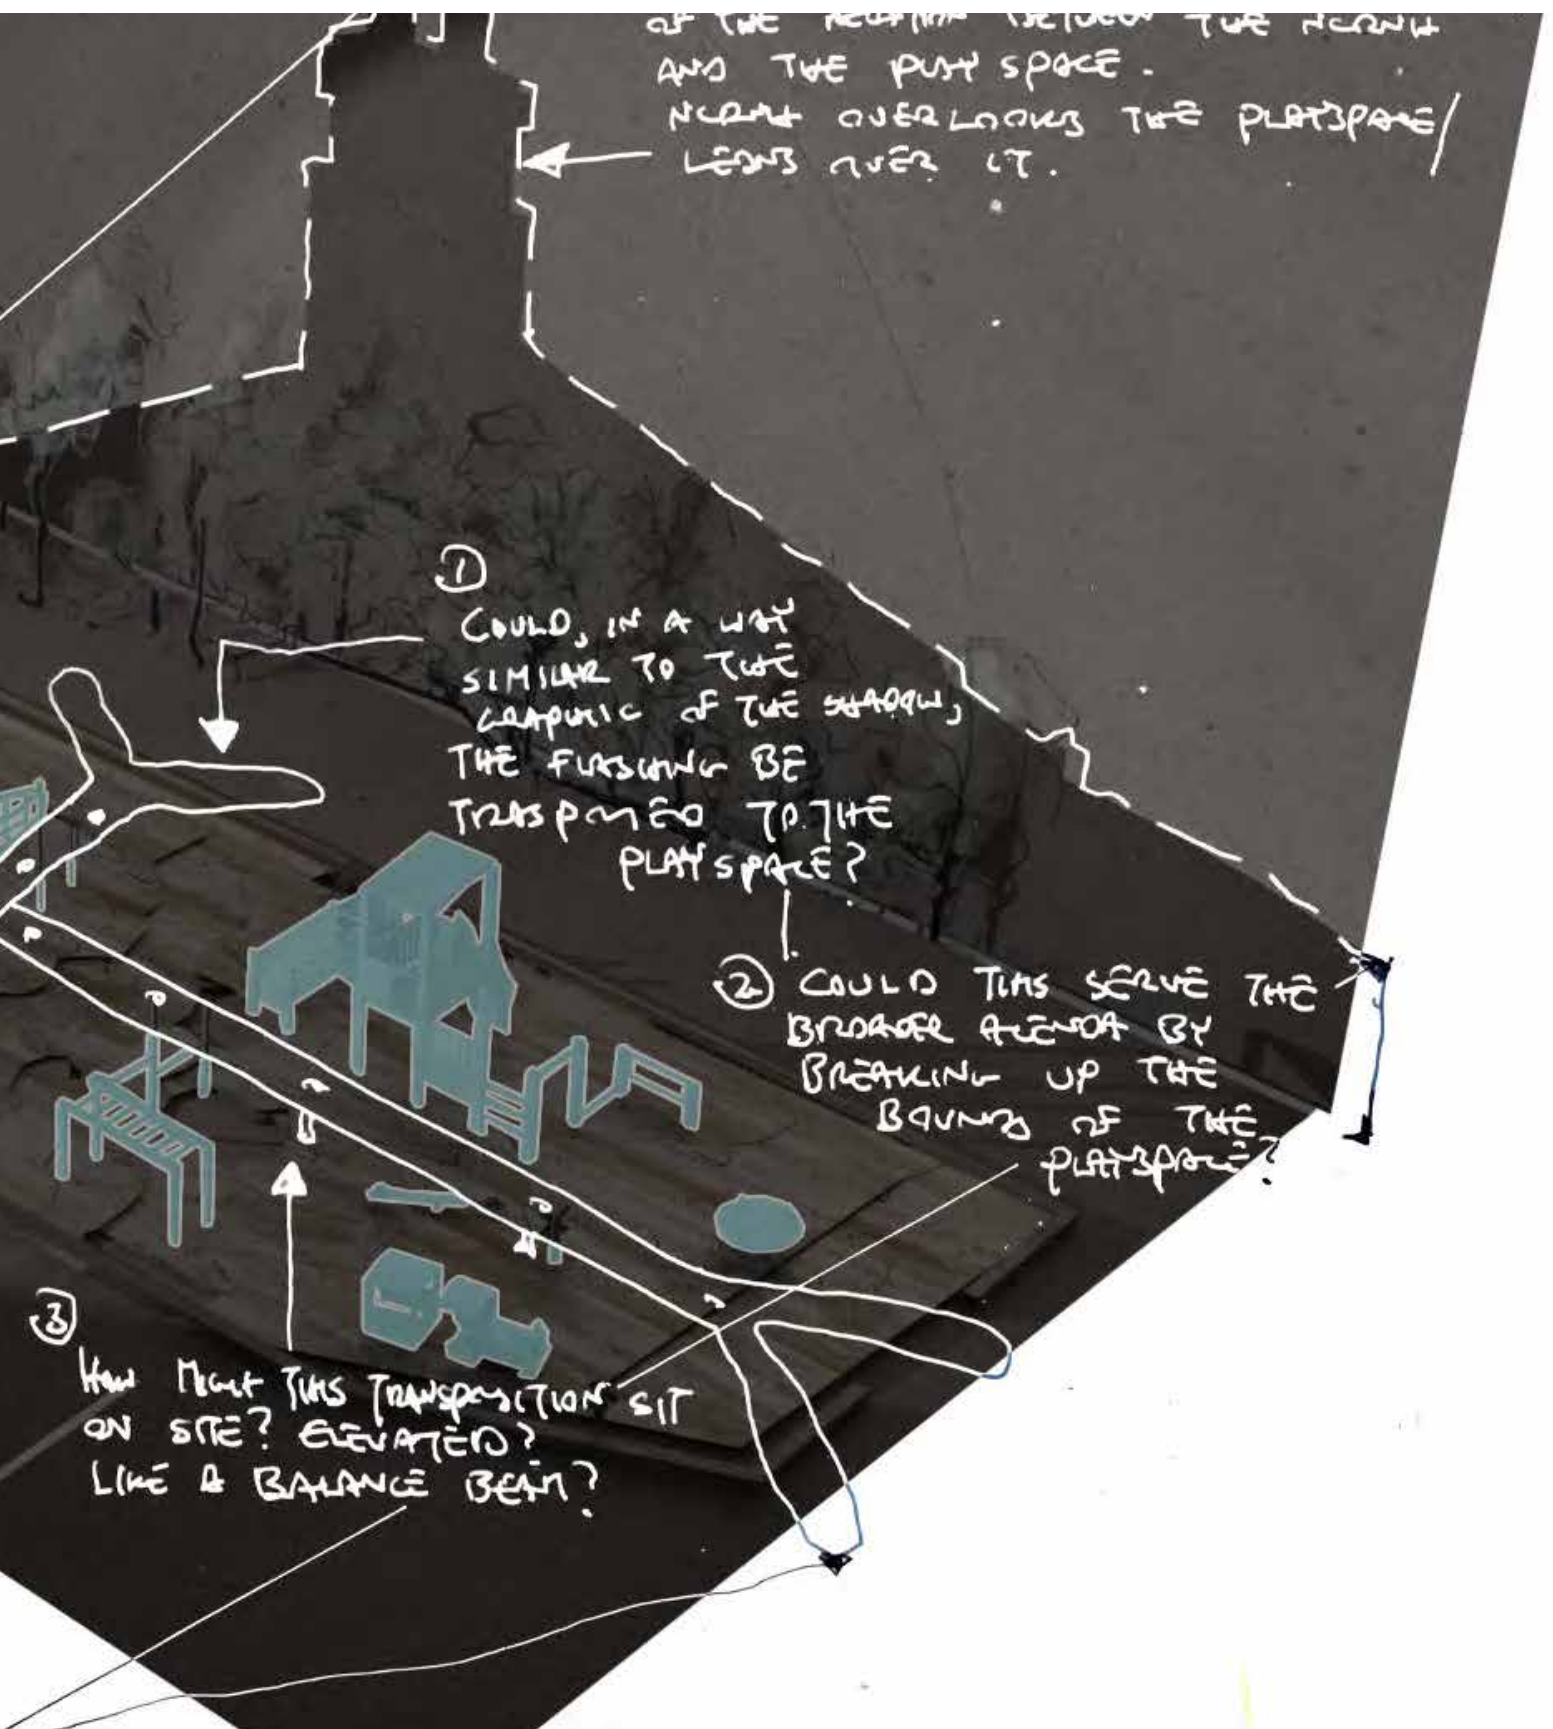 OF THE RELATION BETWEEN THE NCRNH
AND THE PLAY SPACE.
OVERLOOKS THE PLAYSPACE/
LEANS OVER IT.
1
COULD, IN A WAY
SIMILAR TO THE
GRAPHIC OF THE SHADOW,
THE FLASHING BE
TO THE
PLAYSPACE?
2 COULD THIS SERVE THE
BROADER AGENDA BY
BREAKING UP THE
BOUNDS OF THE
PLAYSPACE?
3
HOW MIGHT THIS TRANSPOSITION SIT
ON SITE? ELEVATED?
LIKE A BALANCE BEAM?